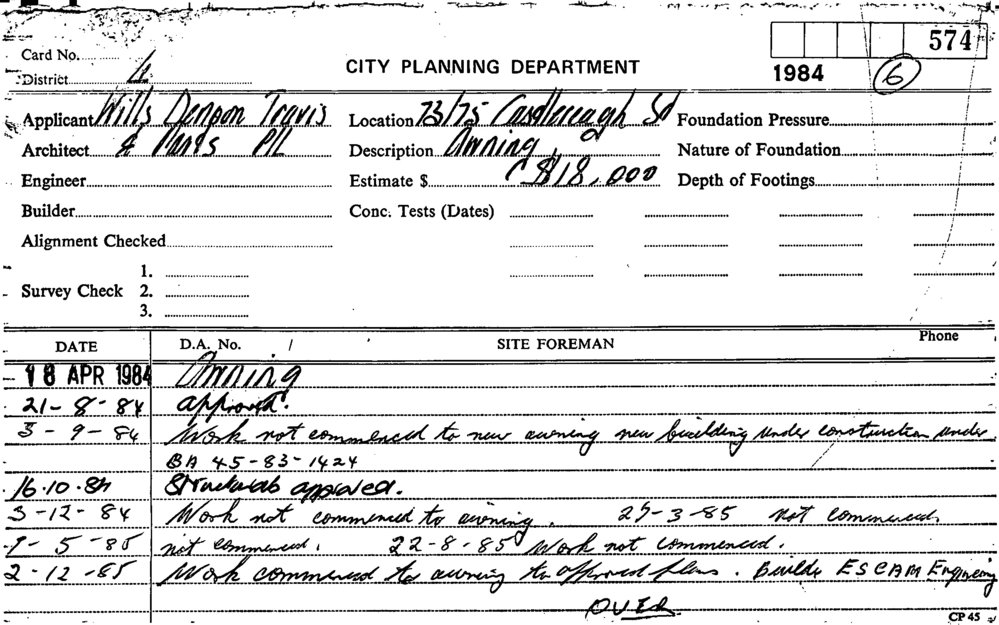 574
Card No.
CITY PLANNING DEPARTMENT
1984 6
District 4
Applicant Wills Denoon Travis Location 73/75 Castlereagh St Foundation Pressure
Architect & Partners P/L Description Awning Nature of Foundation
Engineer Estimate $ $18,000 Depth of Footings
Builder Conc. Tests (Dates)
Alignment Checked
1.
Survey Check 2.
3.
DATE D.A. No. / SITE FOREMAN Phone
18 APR 1984 Awning
21-8-84 approved.
3-9-84 Work not commenced to new awning new building under construction under
BA 45-83-1424
16.10.84 Structurals approved.
3-12-84 Work not commenced to awning. 25-3-85 not commenced.
1-5-85 not commenced. 22-8-85 Work not commenced.
2-12-85 Work commenced to awning to approved plans. Builder ESCAM Engineering
OVER
CP 45